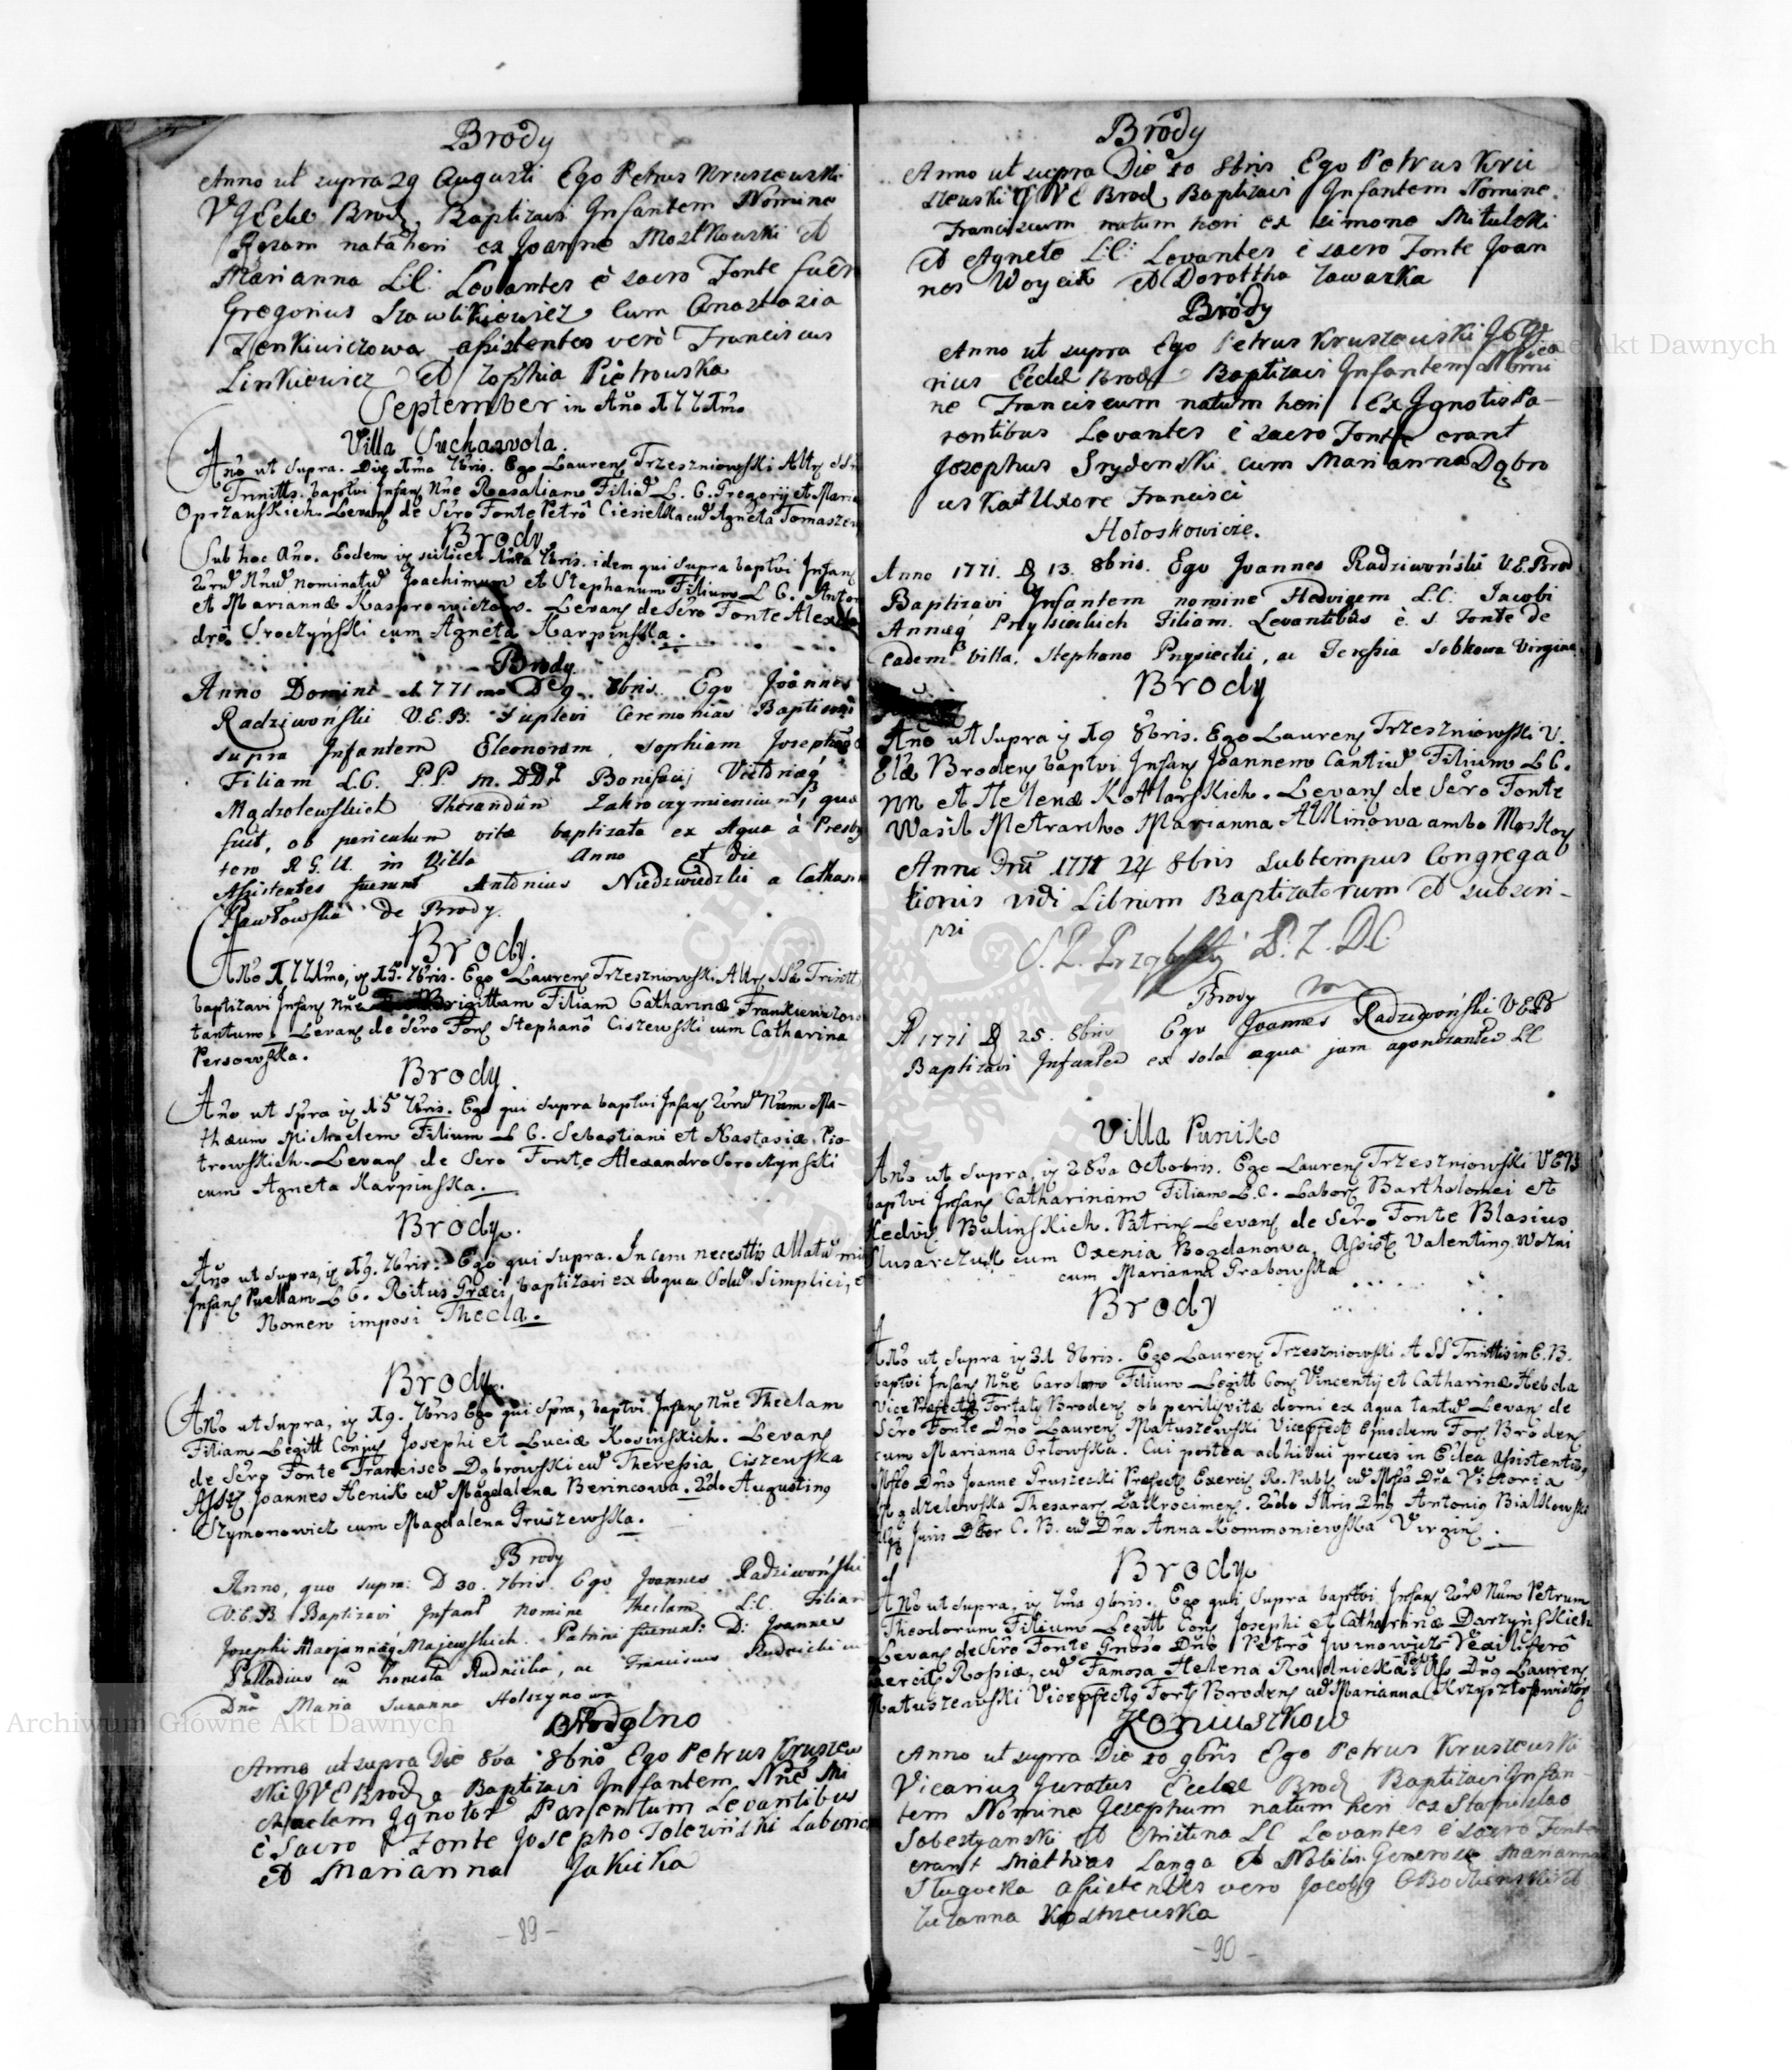 Brody
Anno ut supra 29 Augusti Ego Petrus Kruszewski
Baptizavi Infantem Nomine
Rozam natã heri ex Joanne Mostkowski et
Marianna L:C: Levantes è sacro Fonte fuêr
Gregorius Szawlikiewicz cum Anastazia
Zenkiwiczowa assistentes verò Franciscus
Linkiewicz et Zophia Piêtrowska
September in Año 1771mo
Villa Suchawola.
Año ut Supra. Die 1ma 7bris. Ego Laurenʒ Trzeszniowski
baptvi Infanʒ Nñe Rosaliam Filiã L. C. Gregorij et Maria
Oprzańskich. Levanʒ de Sêro Fonte Petrô Ciesielka cũ Agneta Tomaszew
Brody.
Sub hoc Año. Eodem scilicet 1ma 7bris. idem qui supra baptvi Infanʒ
nominatũ Joachimum et Stephanum Filium L C. Anton
et Mariannæ Kasprowiczow. Levanʒ de Sêro Fonte Alexan
drô Sroczyński cum Agneta Karpinska.
Brody.
Anno Domini 1771mo D 9 8bris Ego Joannes
Radziwoński V.E.B. Suplevi Ceremonias Baptismi
supra Infantem Eleonoram, Sophiam Josepham
Filiam L.C. P.P. M. DD Bonifacij Victoriæq́
Mądzolewskich Thesaur Zakroczymiensium, quæ
fuit, ob periculum vitæ baptizata ex Aqua à Presby
tero R G. U. in Villa Anno et die
Assistentes fuerunt Antonius Niedzwiedzki a Cathar
Pawłowska de Brody.
Brody.
Año 1771mo, 15. 7bris. Ego Laurenʒ Trzeszniowski
baptizavi Infanʒ Nñe Brigittam Filiam Catharinæ Frankiewiczow
tantum. Levanʒ de Sêro Fonʒ Stephanô Ciszewski cum Catharina
Persowska.
Brody.
Año ut spra 15 7bris. Ego qui supra baptvi Infanʒ Num Ma-
thæum Michaelem Filium L C. Sebastiani et Nastasiæ Pio-
trowskich. Levanʒ de Sero Fonte Alexandro Soroczynski
cum Agneta Karpinska.
Brody.
Año ut supra, 19. 7bris. Ego qui supra. In cem necesttis allatũ mi
Infanʒ Puellam L C. Ritus Græci, baptizavi ex Aqua Solũ Simplici, e
Nomen imposi Thecla.
Brody.
Año ut Supra, 19. 7bris Ego qui spra, baptvi Infanʒ Nñe Theclam
Filiam Legitt Conjuʒ Josephi et Luciæ Kosinskich. Levanʒ
de Sêro Fonte Francisco Dąbrowski cũ Theressia Ciszewska
Assʒ. Joannes Henik cũ Magdalena Berincowa. 2do Augustinꝯ
Szymonowicz cum Magdalena Gruszewska.
Brody
Anno, quo supra: D 30. 7bris. Ego Joannes Radziwoński
V.E.B. Baptizavi Infant nomine Theclam L:C. Filiam
Josephi Mariannæq́ Majewskich. Patrini fuerunt: D: Joannes
Palladius cũ honesta Rudnicka, ac Franciscus Rudnicki cũ
Dna Maria Suzanna Holszynowa
Anno ut supra Die 8va 8bris Ego Petrus Kruszew
ski Baptizavi Infantem Nñe Mi
chaelem Ignotor Parentum Levantibus
è Sacro Fonte Josepho Tolewiński
et Marianna Jakicka
-89-
Brody
Anno ut supra Die 10 8bris Ego Petrus Kru
szewski VE Brod Baptizavi Infantem Nomine
Franciscum natum heri ex Simone Mitulski
et Agnete L:C: Levantes è sacro Fonte Joan
nes Woycik et Dorottha Zawaska
Brody
Anno ut supra Ego Petrus Kruszewski
rius Eccl Brod Baptizavi Infantem Nomi
ne Franciscum natum heri Ex Ignotis Pa-
rentibus Levantes è sacro Fonte erant
Josephus Srydenski cum Marianna Dąbro
wska Uxore Francisci
Hołoskowicze.
Anno 1771. D 13. 8bris. Ego Joannes Radziwoński V.E.Brod
Baptizavi Infantem nomine Hedvigem L.C. Jacobi
Annæq́ Prysieckich Filiam. Levantibus è. s. Fonte de
eadem villa. Stephano Prysiecki, ac Teressia Sobkowa Virgine
Brody
Año ut Supra 19 8bris. Ego Laurenʒ Trzeszniowski V.
Brodenʒ baptvi Infanʒ Joannem Cantiũ Filium L C.
et Helenæ Kotlarskich. Levanʒ de Sêro Fonte
Wasil Marianna Allinowa ambo
Anno Dni 1771 24 8bris sub tempus Congrega
tionis vidi Librum Baptizatorum et subscri-
psi
Brody
A 1771 D 25. 8bris Ego Joannes Radziwoński VEB
Baptizavi Infantem ex sola aqua jam agonizantem LC
Villa Puniko
Año ut supra, 28va Octobris. Ego Laurenʒ Trzeszniowski VEB
baptvi Infanʒ Catharinam Filiam L.C. Laborʒ Bartholomei et
Hedvi Bulinskich. Patrinʒ Levanʒ de Sêro Fonte Blasius
Slusarczuk cum Oxenia Bogdanowa. Assistʒ Valentinꝯ Wozni
cum Marianna Grabowska
Brody
Año ut Supra 31 8bris. Ego Laurenʒ Trzeszniowski. A SS Trinttis in E.B.
baptvi Infanʒ Nñe Carolum Filium Legitt Conʒ Vincentij et Catharinæ Hebda
Vice Præfecti Fortaly Brodenʒ ob perilʒ vitæ domi ex aqua tantũ Levanʒ de
Sêro Fonte Dño Laurenʒ Matuszewski Vicepfectʒ Ejusdem Forʒ Brodenʒ
cum Marianna Orłowska. Cui postea adhibui preces in Eclea assistentibꝯ
Dño Joanne Gruszecki Præfectʒ Exercitʒ R. Publʒ cũ Dña Victoria
Mądzelewska Thesararʒ Zakrocimenʒ. 2do Dnꝯ Antoniꝯ Białkowski
Juris Dtor C. B. cũ Dña Anna Kommoniewska Virginʒ.
Brody
Año ut supra, 1ma 9bris. Ego qui Supra baptvi Infanʒ Num Petrum
Theodorum Filium Legitt Conʒ Josephi et Catharinæ Darzynskich
Levanʒ de Sêro Fonte Gnoso Dño Petrô Iwinowicz Vexilliferô
Exercitʒ Rossiæ, cũ Famosa Helena Rudnicka. Ass Dnꝯ Laurenʒ
Matuszewski Vicepfectꝯ Fortʒ Brodenʒ cũ Marianna Krzysztofowicz
Koniuszkow
Anno ut supra Die 10 9bris Ego Petrus Kruszewski
Vicarius Curatus Eccłæ Brod Baptizavi Infan-
tem Nomine Josephum natum heri ex Stanislao
Sobestyanski et Christina LC Levantes è sacro Fonte
erant Mathias Langa et Nobilis Generosa Marianna
Sługocka assistentes vero Jacobꝯ et
Zuzanna Kostrzewska
-90-
Archiwum Główne Akt Dawnych
Archiwum Główne Akt Dawnych